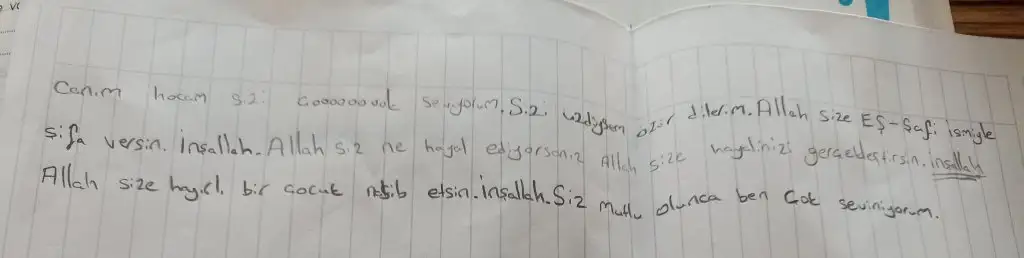 Canım hocam sizi çooooooook seviyorum. Sizi üzdüysem özür dilerim. Allah size EŞ-Şafi ismiyle
şifa versin. İnşallah. Allah siz ne hayal ediyorsanız Allah size hayalinizi gerçekleştirsin. İnşallah
Allah size hayırlı bir çocuk nasib etsin. İnşallah. Siz mutlu olunca ben çok seviniyorum.